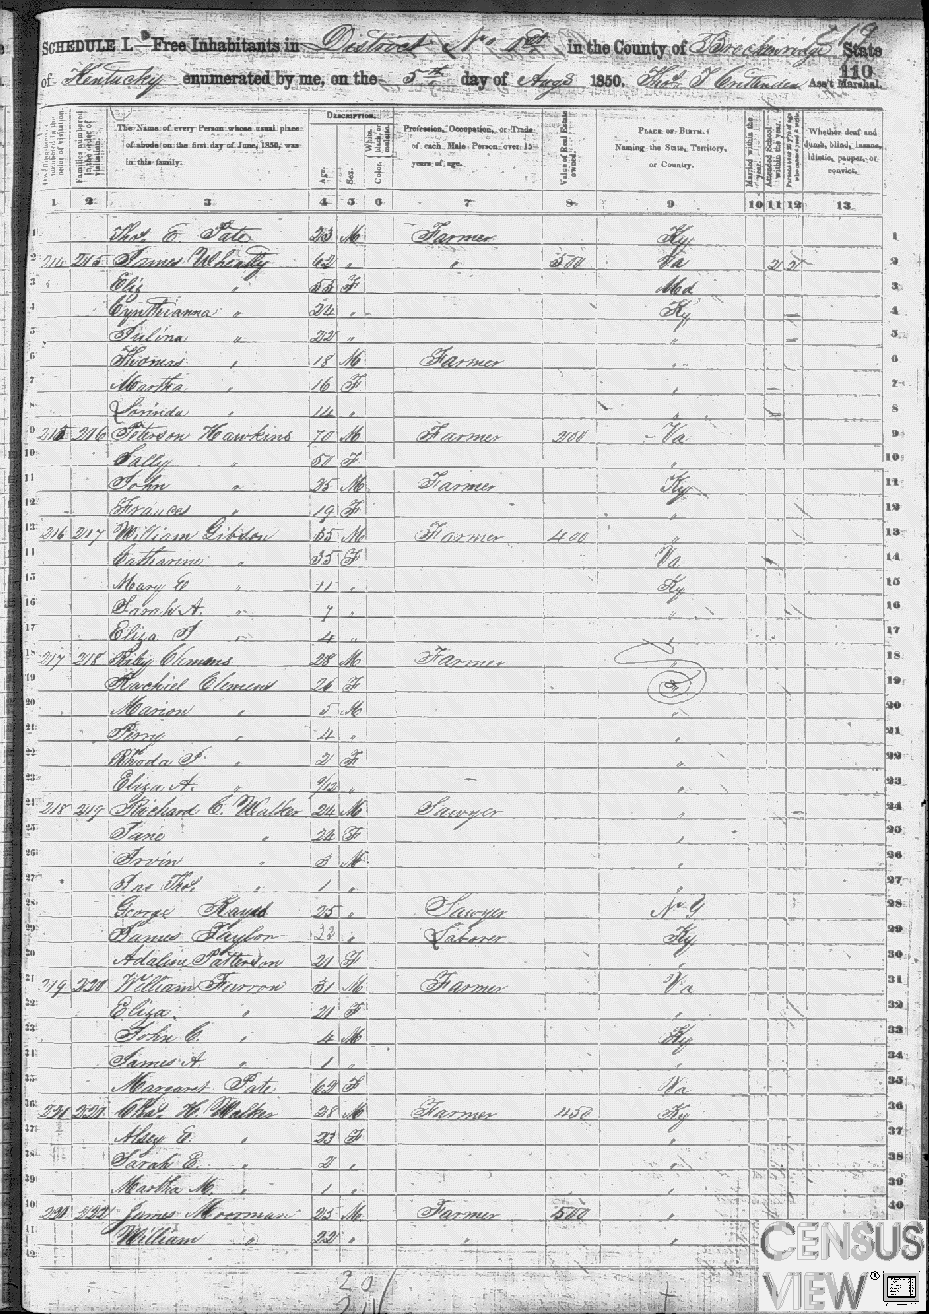 SCHEDULE I.—Free Inhabitants in District No 1st in the County of Breckenridge State
of Kentucky enumerated by me, on the 5th day of Aug 1850. Thos J Crittenden Ass't Marshal.
110
Dwelling-houses numbered in the order of visitation
Families numbered in the order of visitation.
The Name of every Person whose usual place of abode on the first day of June, 1850, was in this family.
Description.
Age.
Sex.
Color. White, black, or mulatto.
Profession, Occupation, or Trade of each Male Person over 15 years of age.
Value of Real Estate owned.
Place of Birth. Naming the State, Territory, or Country.
Married within the year.
Attended School within the year.
Whether deaf and dumb, blind, insane, idiotic, pauper, or convict.
1 2 3 4 5 6 7 8 9 10 11 12 13
1 Thos E Pate 23 M Farmer Ky 1
2 214 215 James Wheatly 62 " " 500 Va 2
3 Eliz " 55 F Md 3
4 Cynthianna " 24 " Ky 4
5 Julina " 22 " " 5
6 Thomas " 18 M Farmer " 6
7 Martha " 16 F " 7
8 Lorinda " 14 " " 8
9 215 216 Peterson Hawkins 70 M Farmer 200 Va 9
10 Sally " 50 F " 10
11 John " 35 M Farmer Ky 11
12 Frances " 19 F " 12
13 216 217 William Gibson 35 M Farmer 400 " 13
14 Catharine " 35 F Va 14
15 Mary E " 11 " Ky 15
16 Sarah A. " 7 " " 16
17 Eliza J " 4 " " 17
18 217 218 Riby Clemons 28 M Farmer " 18
19 Rachiel Clemens 26 F " 19
20 Marion " 5 M " 20
21 Perry " 4 " " 21
22 Rhoda F. " 2 F " 22
23 Eliza A. " 9/12 " " 23
24 218 219 Richard C. Walker 24 M Sawyer " 24
25 Jane " 24 F " 25
26 Irvin " 3 M " 26
27 Jas Thos " 1 " " 27
28 George 25 " Sawyer N. Y 28
29 James Taylor 22 " Laborer Ky 29
30 Adaline Patterson 21 F " 30
31 219 220 William Furron 31 M Farmer Va 31
32 Eliza " 21 F " 32
33 John C. " 4 M Ky 33
34 James A " 1 " " 34
35 Margaret Pate 62 F Va 35
36 220 221 Chas H. Walker 28 M Farmer 450 Ky 36
37 Alsey E. " 23 F " 37
38 Sarah E. " 2 " " 38
39 Martha M. " 1 " " 39
40 221 222 James Moorman 25 M Farmer 500 " 40
41 William " 22 " " "
42
CENSUS
VIEW®